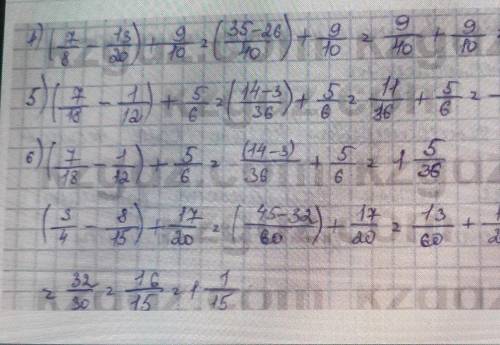 4) (7/8 - 13/20) + 9/10 = (35-26/40) + 9/10 = 9/40 + 9/10 =
5) (7/18 - 1/12) + 5/6 = (14-3/36) + 5/6 = 11/36 + 5/6 = -
6) (7/18 - 1/12) + 5/6 = (14-3)/36 + 5/6 = 1 5/36
(3/4 - 8/15) + 17/20 = (45-32/60) + 17/20 = 13/60 +
= 32/30 = 16/15 = 1 1/15